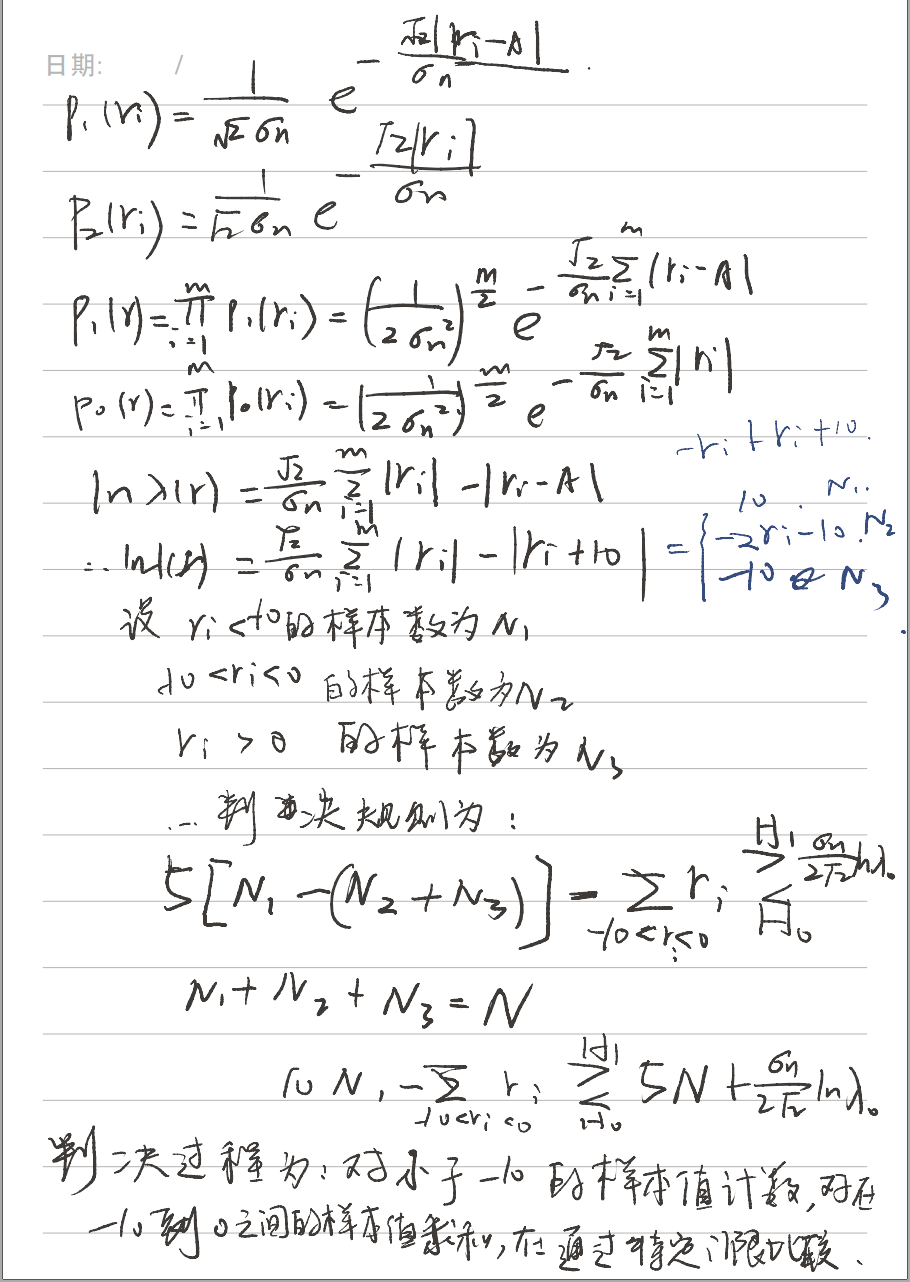 日期: /
P₁(rᵢ) = 1/(√2 σn) e^(-√2|rᵢ-A|/σn)
P₂(rᵢ) = 1/(√2 σn) e^(-√2|rᵢ|/σn)
P₁(r) = ∏_{i=1}^{m} P₁(rᵢ) = (1/(2σn²))^(m/2) e^(-√2/σn ∑_{i=1}^{m} |rᵢ-A|)
P₀(r) = ∏_{i=1}^{m} P₀(rᵢ) = (1/(2σn²))^(m/2) e^(-√2/σn ∑_{i=1}^{m} |rᵢ|)
-rᵢ+rᵢ+10.
ln λ(r) = √2/σn ∑_{i=1}^{m} |rᵢ| - |rᵢ-A|
∴ ln λ(r) = √2/σn ∑_{i=1}^{m} |rᵢ| - |rᵢ+10| = { 10 . N₁.
-2rᵢ-10 . N₂
-10 N₃
设 rᵢ<-10的样本数为N₁
-10<rᵢ<0 的样本数为N₂
rᵢ>0 的样本数为N₃
∴ 判决规则为:
5[N₁-(N₂+N₃)] - ∑_{-10<rᵢ<0} rᵢ ≷^{H₁}_{H₀} σn/(2√2) ln λ₀
N₁+N₂+N₃=N
10 N₁ - ∑_{-10<rᵢ<0} rᵢ ≷^{H₁}_{H₀} 5N + σn/(2√2) ln λ₀
判决过程为:对小于-10 的样本值计数,对在
-10到0之间的样本值求和,在通过特定门限比较.